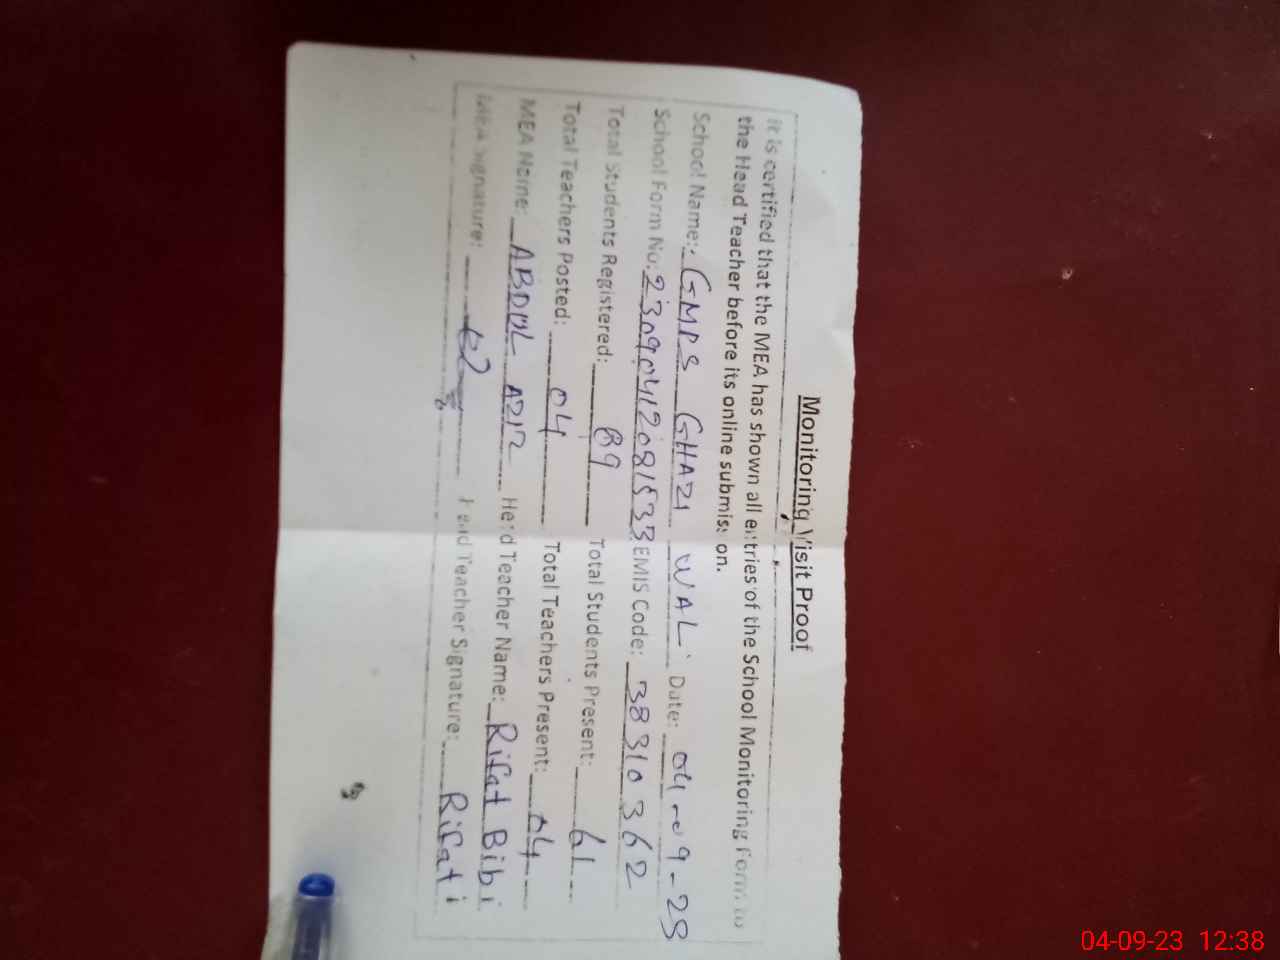 Monitoring Visit Proof
It is certified that the MEA has shown all entries of the School Monitoring Form to
the Head Teacher before its online submission.
School Name: GMPS GHAZI WAL Date: 04-09-23
School Form No: 23090412081533 EMIS Code: 38310362
Total Students Registered: 89 Total Students Present: 61
Total Teachers Posted: 04 Total Teachers Present: 04
MEA Name: ABDUL AZIZ Head Teacher Name: Rifat Bibi
MEA Signature: Head Teacher Signature: Rifat i
04-09-23 12:38